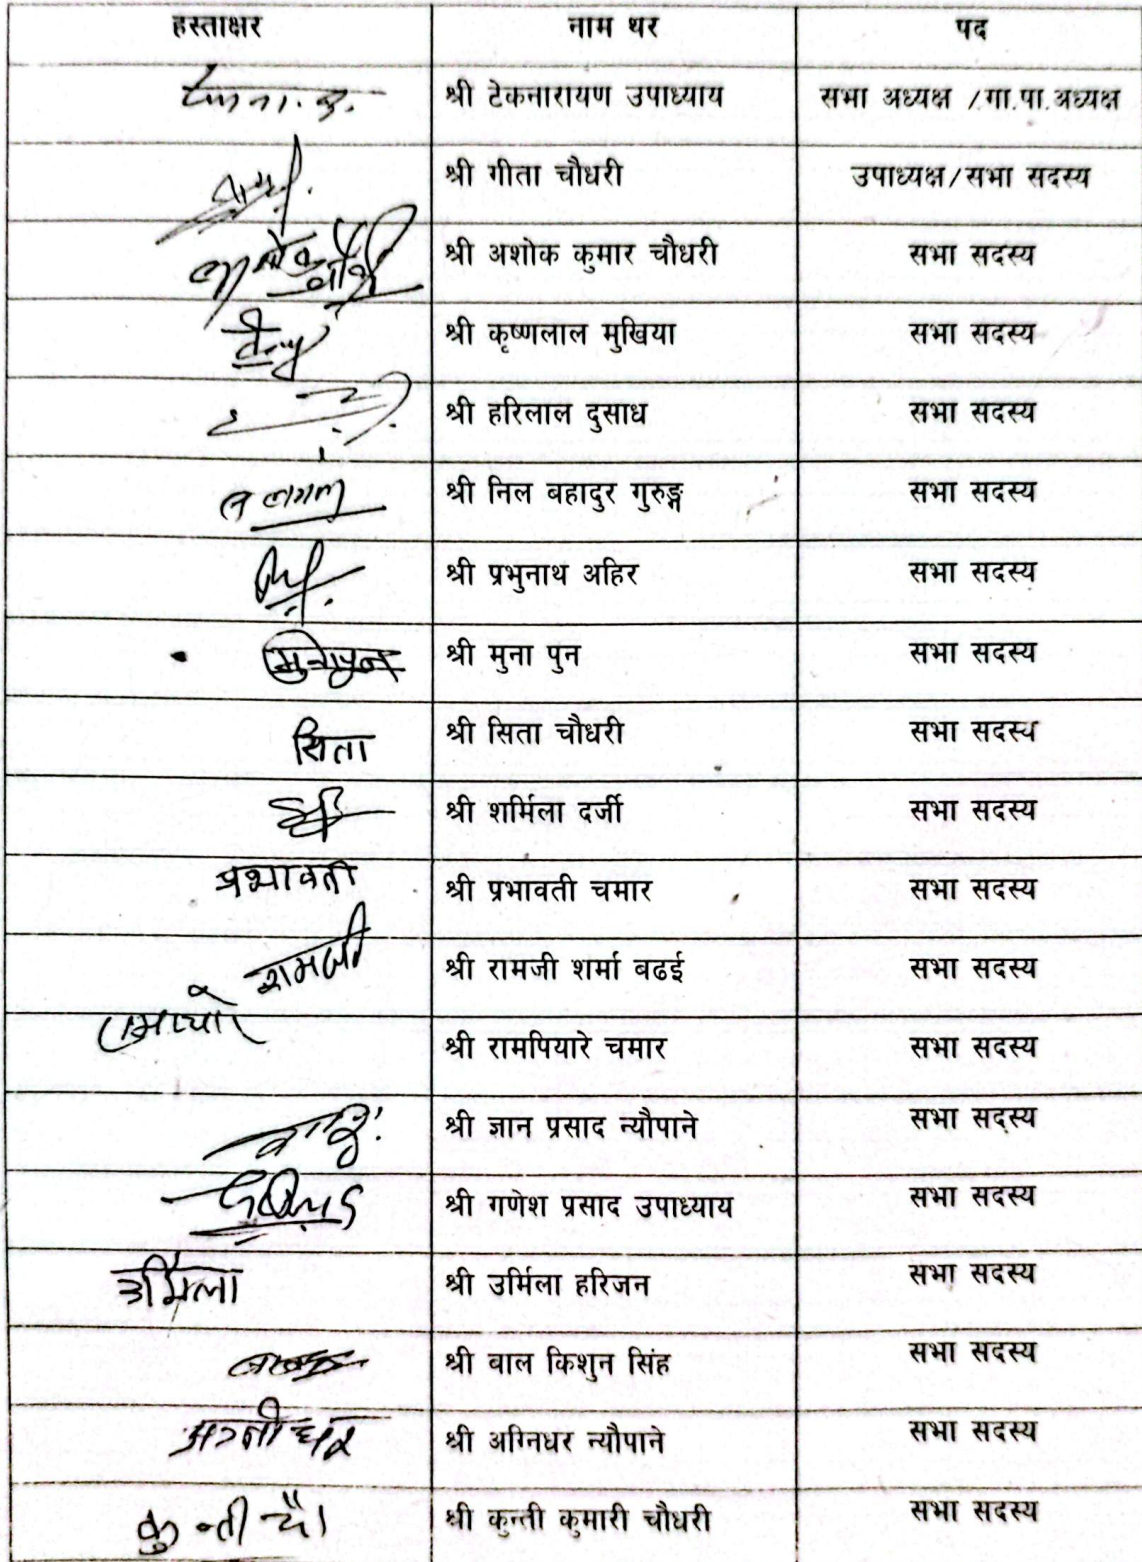 हस्ताक्षर नाम थर पद
श्री टेकनारायण उपाध्याय सभा अध्यक्ष /गा.पा.अध्यक्ष
श्री गीता चौधरी उपाध्यक्ष/सभा सदस्य
श्री अशोक कुमार चौधरी सभा सदस्य
श्री कृष्णलाल मुखिया सभा सदस्य
श्री हरिलाल दुसाध सभा सदस्य
श्री निल बहादुर गुरुङ्ग सभा सदस्य
श्री प्रभुनाथ अहिर सभा सदस्य
मुनापुन श्री मुना पुन सभा सदस्य
सिता श्री सिता चौधरी सभा सदस्य
श्री शर्मिला दर्जी सभा सदस्य
प्रभावती श्री प्रभावती चमार सभा सदस्य
रामजी श्री रामजी शर्मा बढई सभा सदस्य
श्री रामपियारे चमार सभा सदस्य
श्री ज्ञान प्रसाद न्यौपाने सभा सदस्य
श्री गणेश प्रसाद उपाध्याय सभा सदस्य
उर्मिला श्री उर्मिला हरिजन सभा सदस्य
श्री बाल किशुन सिंह सभा सदस्य
अग्नीधर श्री अग्निधर न्यौपाने सभा सदस्य
कुन्ती चौ श्री कुन्ती कुमारी चौधरी सभा सदस्य